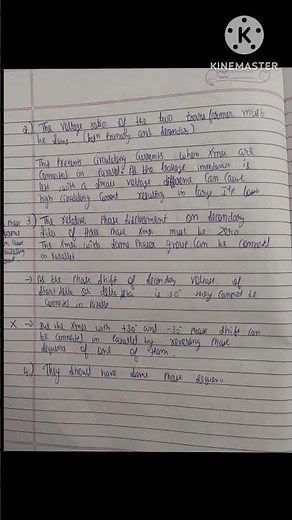 KINEMASTER
2) The voltage ratio of the two transformer must
be same. (btn primary and secondary)
This prevents circulating currents when Xmes are
connected in parallel. As the leakage impedance is
less with a small voltage difference can cause
high circulating current resulting in large I²R loss
3) The relative phase displacement on secondary
side of three phase Xmes must be zero.
The Xmes with same phase group can be connected
in parallel
→ As the phase shift of secondary voltage of
is 30° they cannot be
connected in parallel.
X → But the Xmes with +30° and -30° phase shift can
be connected in parallel by reversing phase
sequence of one of them.
4.) They should have same phase sequence